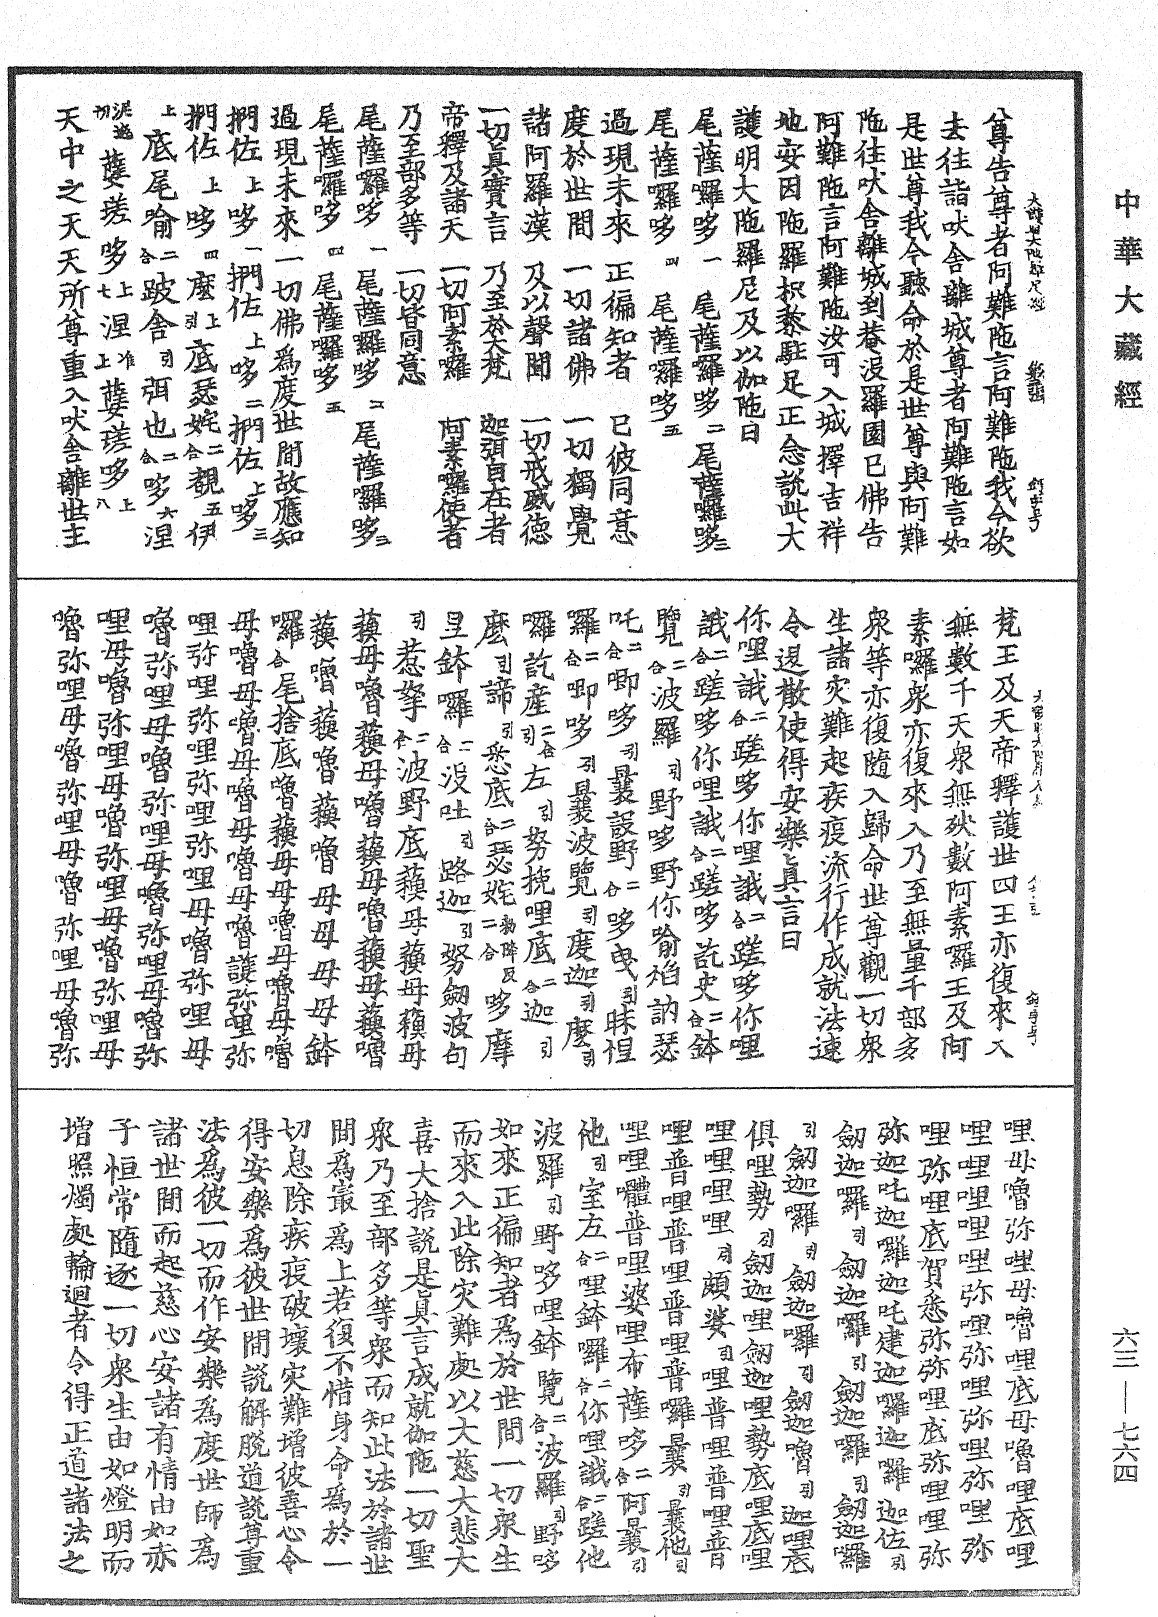 中華大藏經
六三——七六四
尒尊告尊者阿難陁言阿難陁我今欲
去往詣吠舎離城尊者阿難陁言如
是世尊我今聽命於是世尊與阿難
陁往吠舎離城到菴没羅園已佛告
阿難陁言阿難陁汝可入城擇吉祥
地安因陁羅枳㮈駐足正念説此大
護明大陁羅尼及以伽陁曰
尾薩囉哆一 尾薩囉哆二 尾薩囉哆三
尾薩囉哆四 尾薩囉哆五
過現未來 正徧知者 已彼同意
度於世間 一切諸佛 一切獨覺
諸阿羅漢 及以聲聞 一切戒威德
一切真實言 乃至於大梵 迦弭自在者
帝釋及諸天 一切阿素囉 阿素囉使者
乃至部多等 一切皆同意
尾薩囉哆一 尾薩囉哆二 尾薩囉哆三
尾薩囉哆四 尾薩囉哆五
過現未來一切佛爲度世間故應知
捫佐上哆一捫佐上哆二捫佐上哆三
捫佐上哆四麽引上底瑟姹二合覩五伊
上底尾喻二合跛舎引弭也二合哆六涅
蘗瑳哆七上涅蘗瑳哆上八
天中之天天所尊重入吠舎離世主
梵王及天帝釋護世四王亦復來入
無數千天衆無数數阿素羅王及阿
素囉衆亦復來入乃至無量千部多
衆等亦復隨入歸命世尊觀一切衆
生諸灾難起疾疫流行作成就法速
令退散使得安樂真言曰
你哩誐二合蹉哆你哩誐二合蹉哆你哩
誐二合蹉哆你哩誐二合蹉哆訖史二合鉢
覽二合波羅引野哆野你喻焰訥瑟
吒二合唧哆引曩設野二合哆曳引昧㨪
羅二合唧哆引曩波覽引度迦引麽引
囉訖産二合引左引努挽哩底二合迦引
麽引諦引㤅底二合瑟姹二合哆摩
呈鉢囉二合没吐引路迦引努劒波句
引惹拏二合波野底蘋母蘋母蘋母
蘋母嚕蘋母嚕蘋母嚕蘋母蘋嚕
蘋嚕蘋嚕蘋嚕母母母母鉢
囉二合尾捨底嚕蘋母母嚕母嚕母嚕
母嚕母嚕母嚕母嚕母嚕護弥哩弥
哩弥哩弥哩弥哩弥哩母嚕弥哩母
嚕弥哩母嚕弥哩母嚕弥哩母嚕弥
哩母嚕弥哩母嚕弥哩母嚕弥哩母
嚕弥哩母嚕弥哩母嚕弥哩母嚕弥
哩母嚕弥哩母嚕哩底母嚕哩底哩
哩哩哩哩哩弥哩弥哩弥哩弥哩弥
哩弥哩底賀悉弥弥哩底弥哩哩弥
弥迦吒迦羅迦吒建迦羅迦囉迦佐引
劒迦羅引劒迦羅引劒迦羅引劒迦羅
引劒迦羅引劒迦羅引劒迦嚕引迦哩底
俱哩勢引劒迦哩劒迦哩勢底哩底哩
哩哩哩哩引頗婆引哩普哩普哩普
哩普哩普哩普哩普羅曩引曩他引
哩哩囉普哩婆哩布薩哆二合阿曩引
他引室左二合哩鉢囉二合你哩誐二合蹉他
波羅引野哆哩鉢覽二合波羅引野哆
如來正徧知者爲於世間一切衆生
而來入此除灾難處以大慈大悲大
喜大捨説是真言成就伽陁一切聖
衆乃至部多等衆而知此法於諸世
間爲㝡爲上若復不惜身命爲於一
切息除疾疫破壞灾難增彼善心令
得安樂爲彼世間説解脱道説尊重
法爲彼一切而作安樂爲度世師爲
諸世間而起慈心安諸有情由如赤
子恒常隨逐一切衆生由如燈明而
增照燭處輪迴者令得正道諸法之